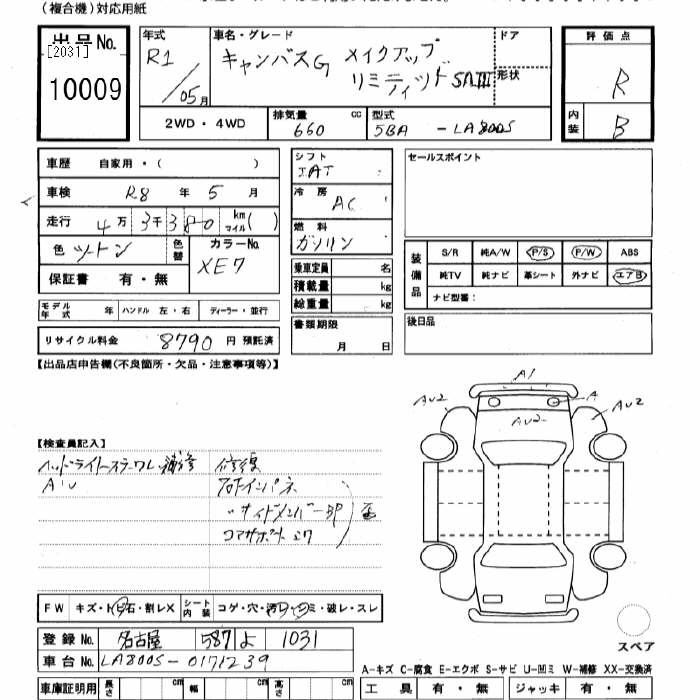 (複合機)対応用紙
出品No.
[2031]
10009
年式
R1
/05月
車名・グレード
キャンバスG メイクアップ
リミティッド SAⅢ
ドア
形状
評価点
R
内装
B
2WD・4WD
排気量
660
cc
型式
5BA - LA800S
車歴 自家用・( )
車検 R8 年 5 月
走行 4万 3千 380 km マイル( )
色 ツートン
色替
カラーNo.
XE7
保証書 有・無
モデル年式 年 ハンドル 左・右 ディーラー・並行
リサイクル料金 8790 円 預託済
シフト
IAT
冷房
AC
燃料
ガソリン
乗車定員 名
積載量 kg
総重量 kg
書類期限
月 日
セールスポイント
装備品
S/R 純A/W P/S P/W ABS
純TV 純ナビ 革シート 外ナビ エアB
ナビ型番:
後日品
【出品店申告欄(不良箇所・欠品・注意事項等)】
【検査員記入】
ヘッドライトステーワレ、補修
AU
修復
右インパネ
〃サイドメンバーBP
コアサポートユワ
A1
AU2
AU2
A
AU2
FW キズ・ト石・割レX
シート内装 コゲ・穴・汚レ・シミ・破レ・スレ
登録No. 名古屋 587 よ 1031
車台No. LA800S-0171239
車庫証明用 長さ cm 幅 cm 高さ cm
スペア
A-キズ C-腐食 E-エクボ S-サビ U-凹ミ W-補修 XX-交換済
工具 有・無 ジャッキ 有・無